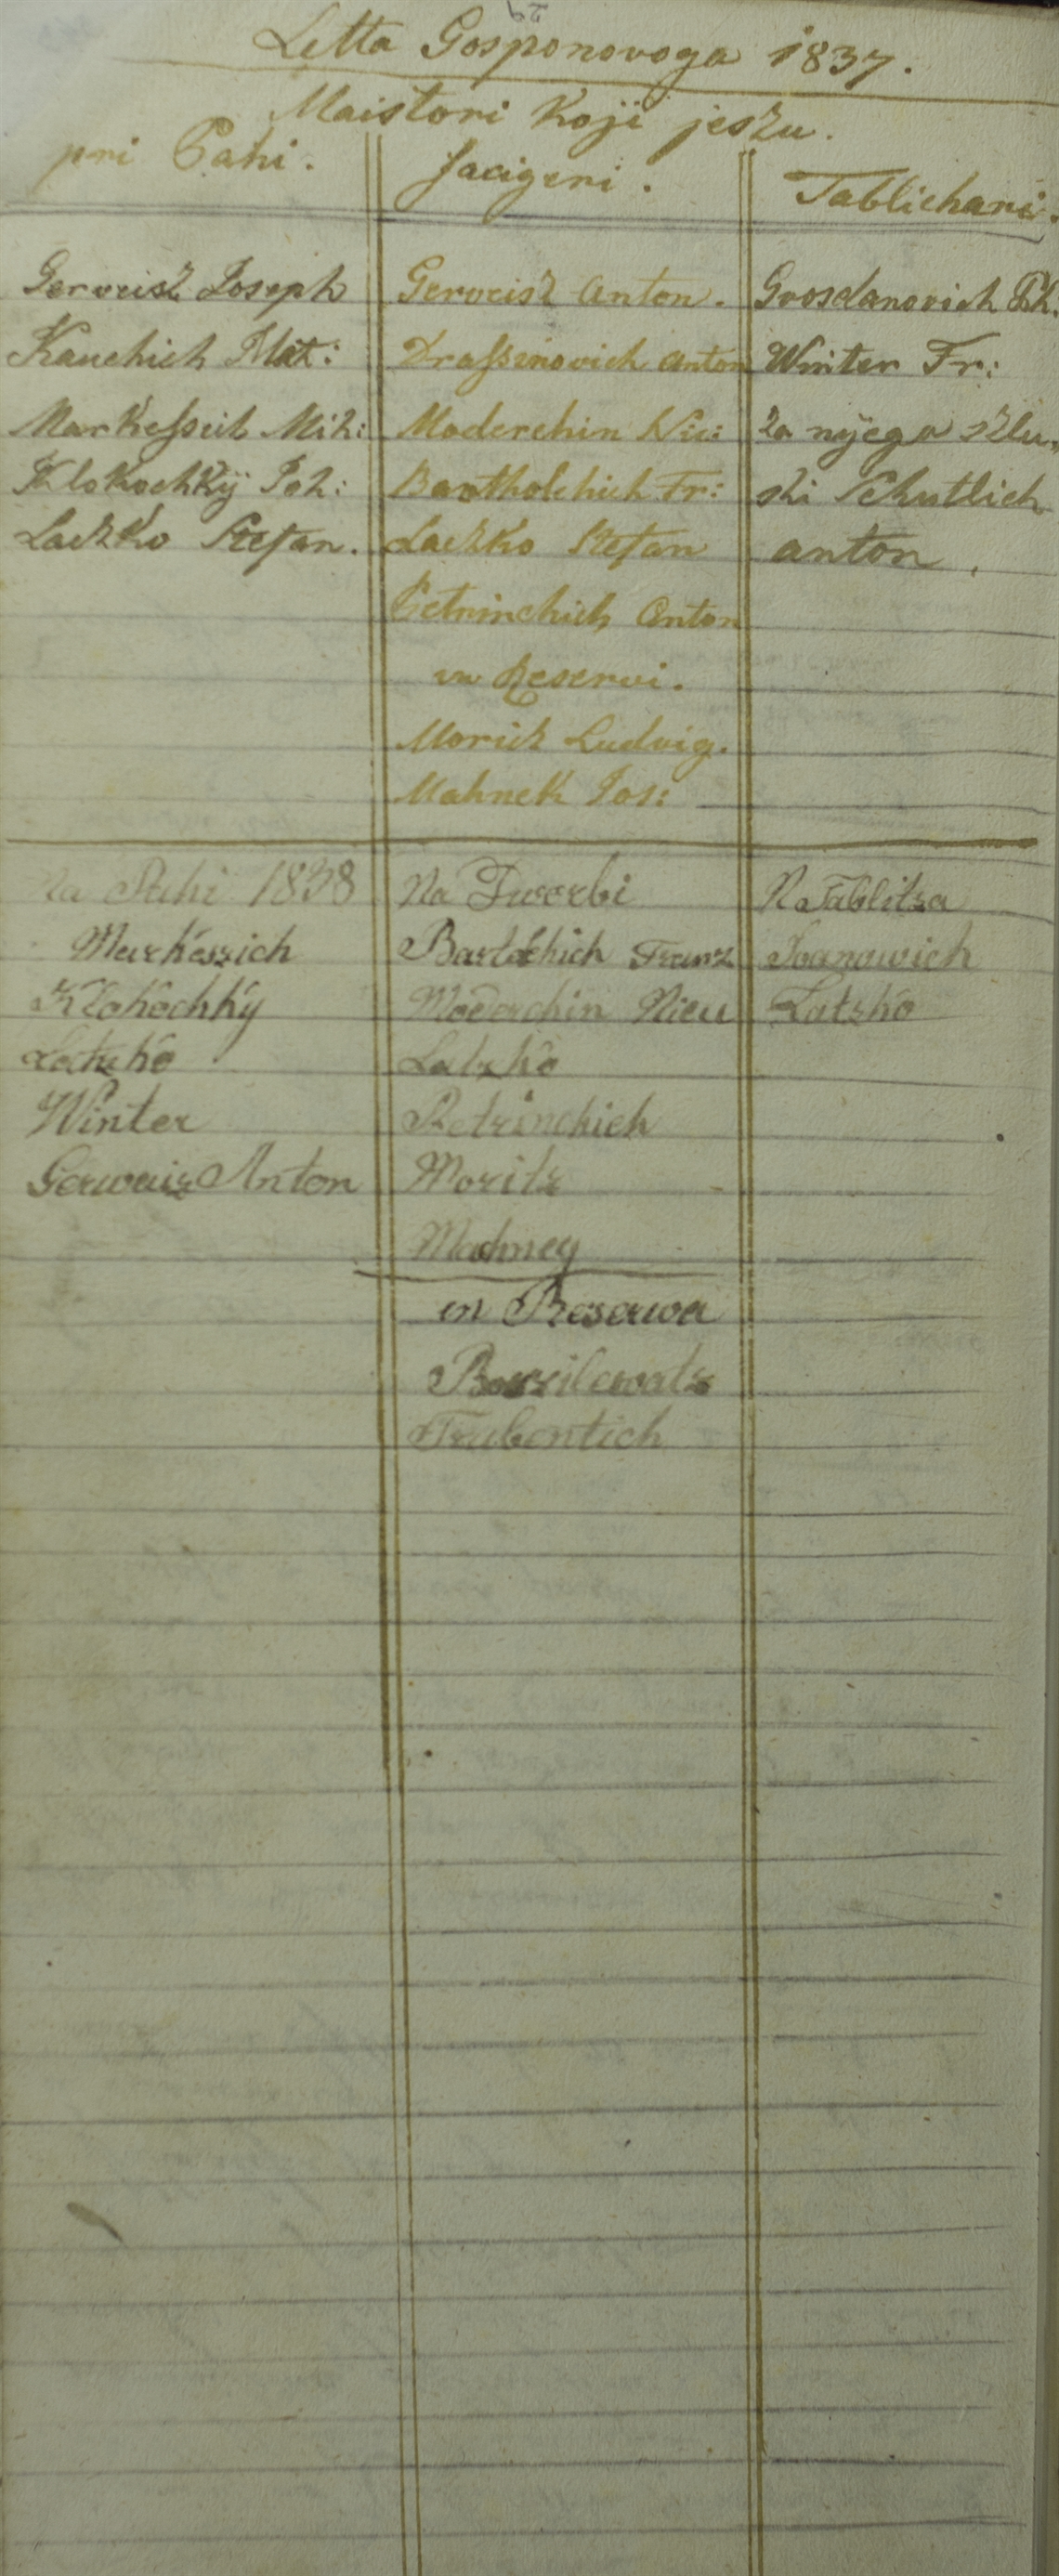 Letta Gosponovoga 1837.
Maistori Koji jeszu.
pri Pahi. facigeri. Tablichari.
Gerveisz Joseph Gerveisz Anton. Grosdanovich Ph.
Kauchich Mat: Drassenovich Anton Winter Fr:
Markesseil Mih: Moderchin Nic: za nyega szlu-
Klokochkÿ Joh: Bartholchich Fr: shi Schutlich
Laczko Stefan. Laczko Stefan anton.
Petrinchich Anton
vu Reservi.
Moricz Ludvig.
Mahnek Jos:
Na 1838 Na Dworbi Na Tablitza
Markeszich Bartolchich Franz Joanowich
Klokochky Moderchin Nicu Latzko
Latzko Latzko
Winter Petrinchich
Gerwaiz Anton Moritz
Machneg
in Reserwa
Trubentich